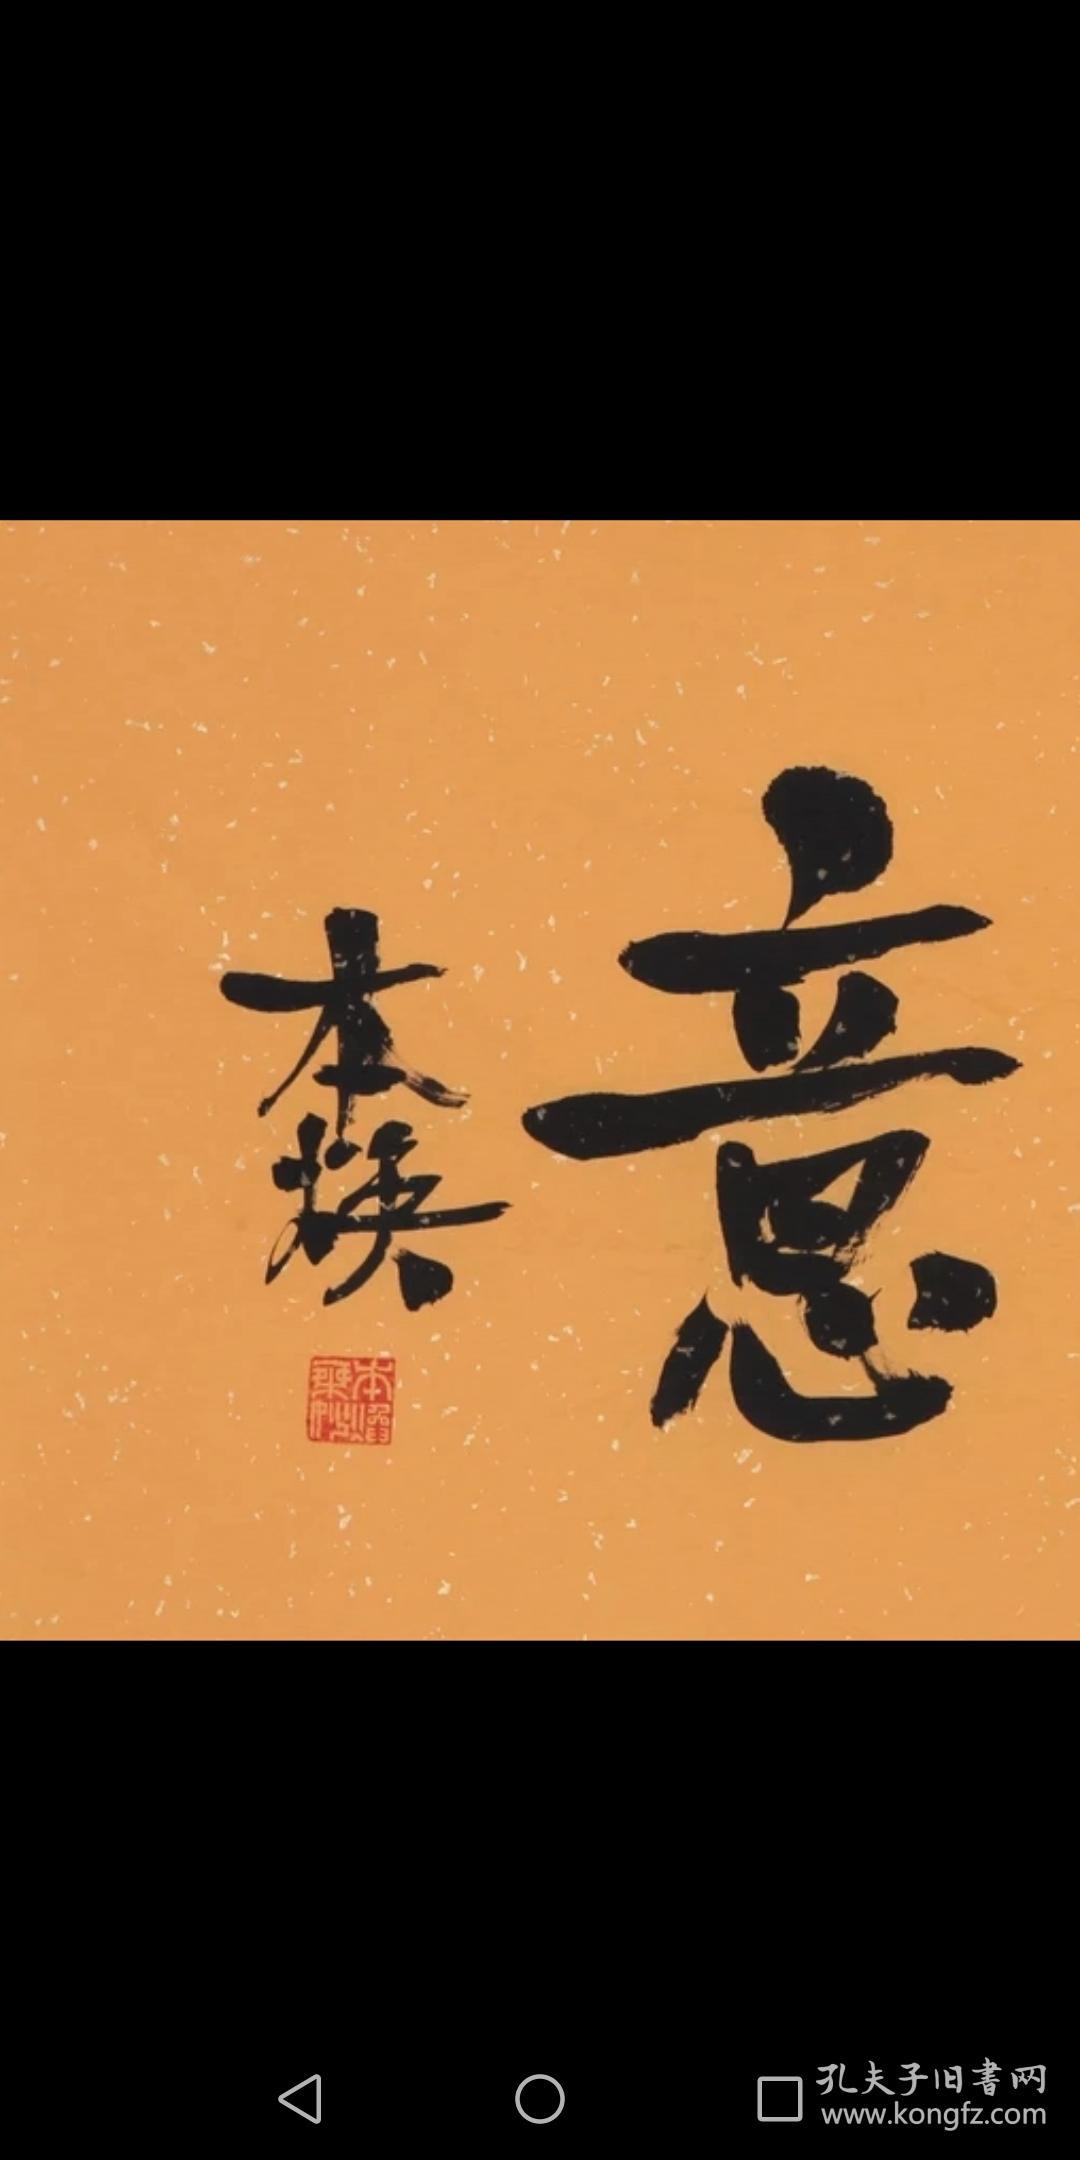 意
本焕
孔夫子旧書网
www.kongfz.com